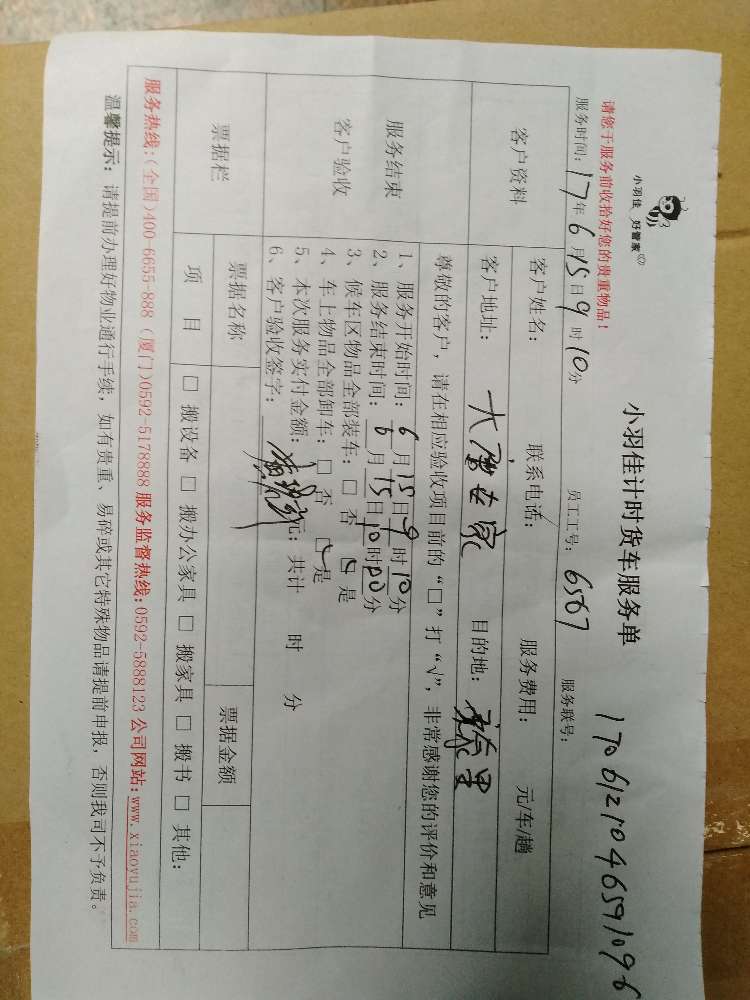 小羽佳 好管家
小羽佳计时货车服务单
1706121046591096
请您于服务前收拾好您的贵重物品！
服务时间：17年6月15日9时10分 员工工号：6567 服务联号：
客户资料
客户姓名： 联系电话： 服务费用： 元/车/趟
客户地址：大唐世家 目的地：
服务结束
客户验收
尊敬的客户，请在相应验收项目前的“□”打“√”，非常感谢您的评价和意见
1、服务开始时间：6月15日9时10分
2、服务结束时间：6月15日10时00分
3、候车区物品全部装车：□ 否 □ 是
4、车上物品全部卸车：□ 否 □ 是
5、本次服务实付金额： 元；共计 时 分
6、客户验收签字：
票据栏
票据名称 票据金额
项 目 □ 搬设备 □ 搬办公家具 □ 搬家具 □ 搬书 □ 其他：
服务热线：（全国）400-6655-888（厦门）0592-5178888 服务监督热线：0592-5888123 公司网站：www.xiaoyujia.com
温馨提示：请提前办理好物业通行手续，如有贵重、易碎或其它特殊物品请提前申报，否则我司不予负责。